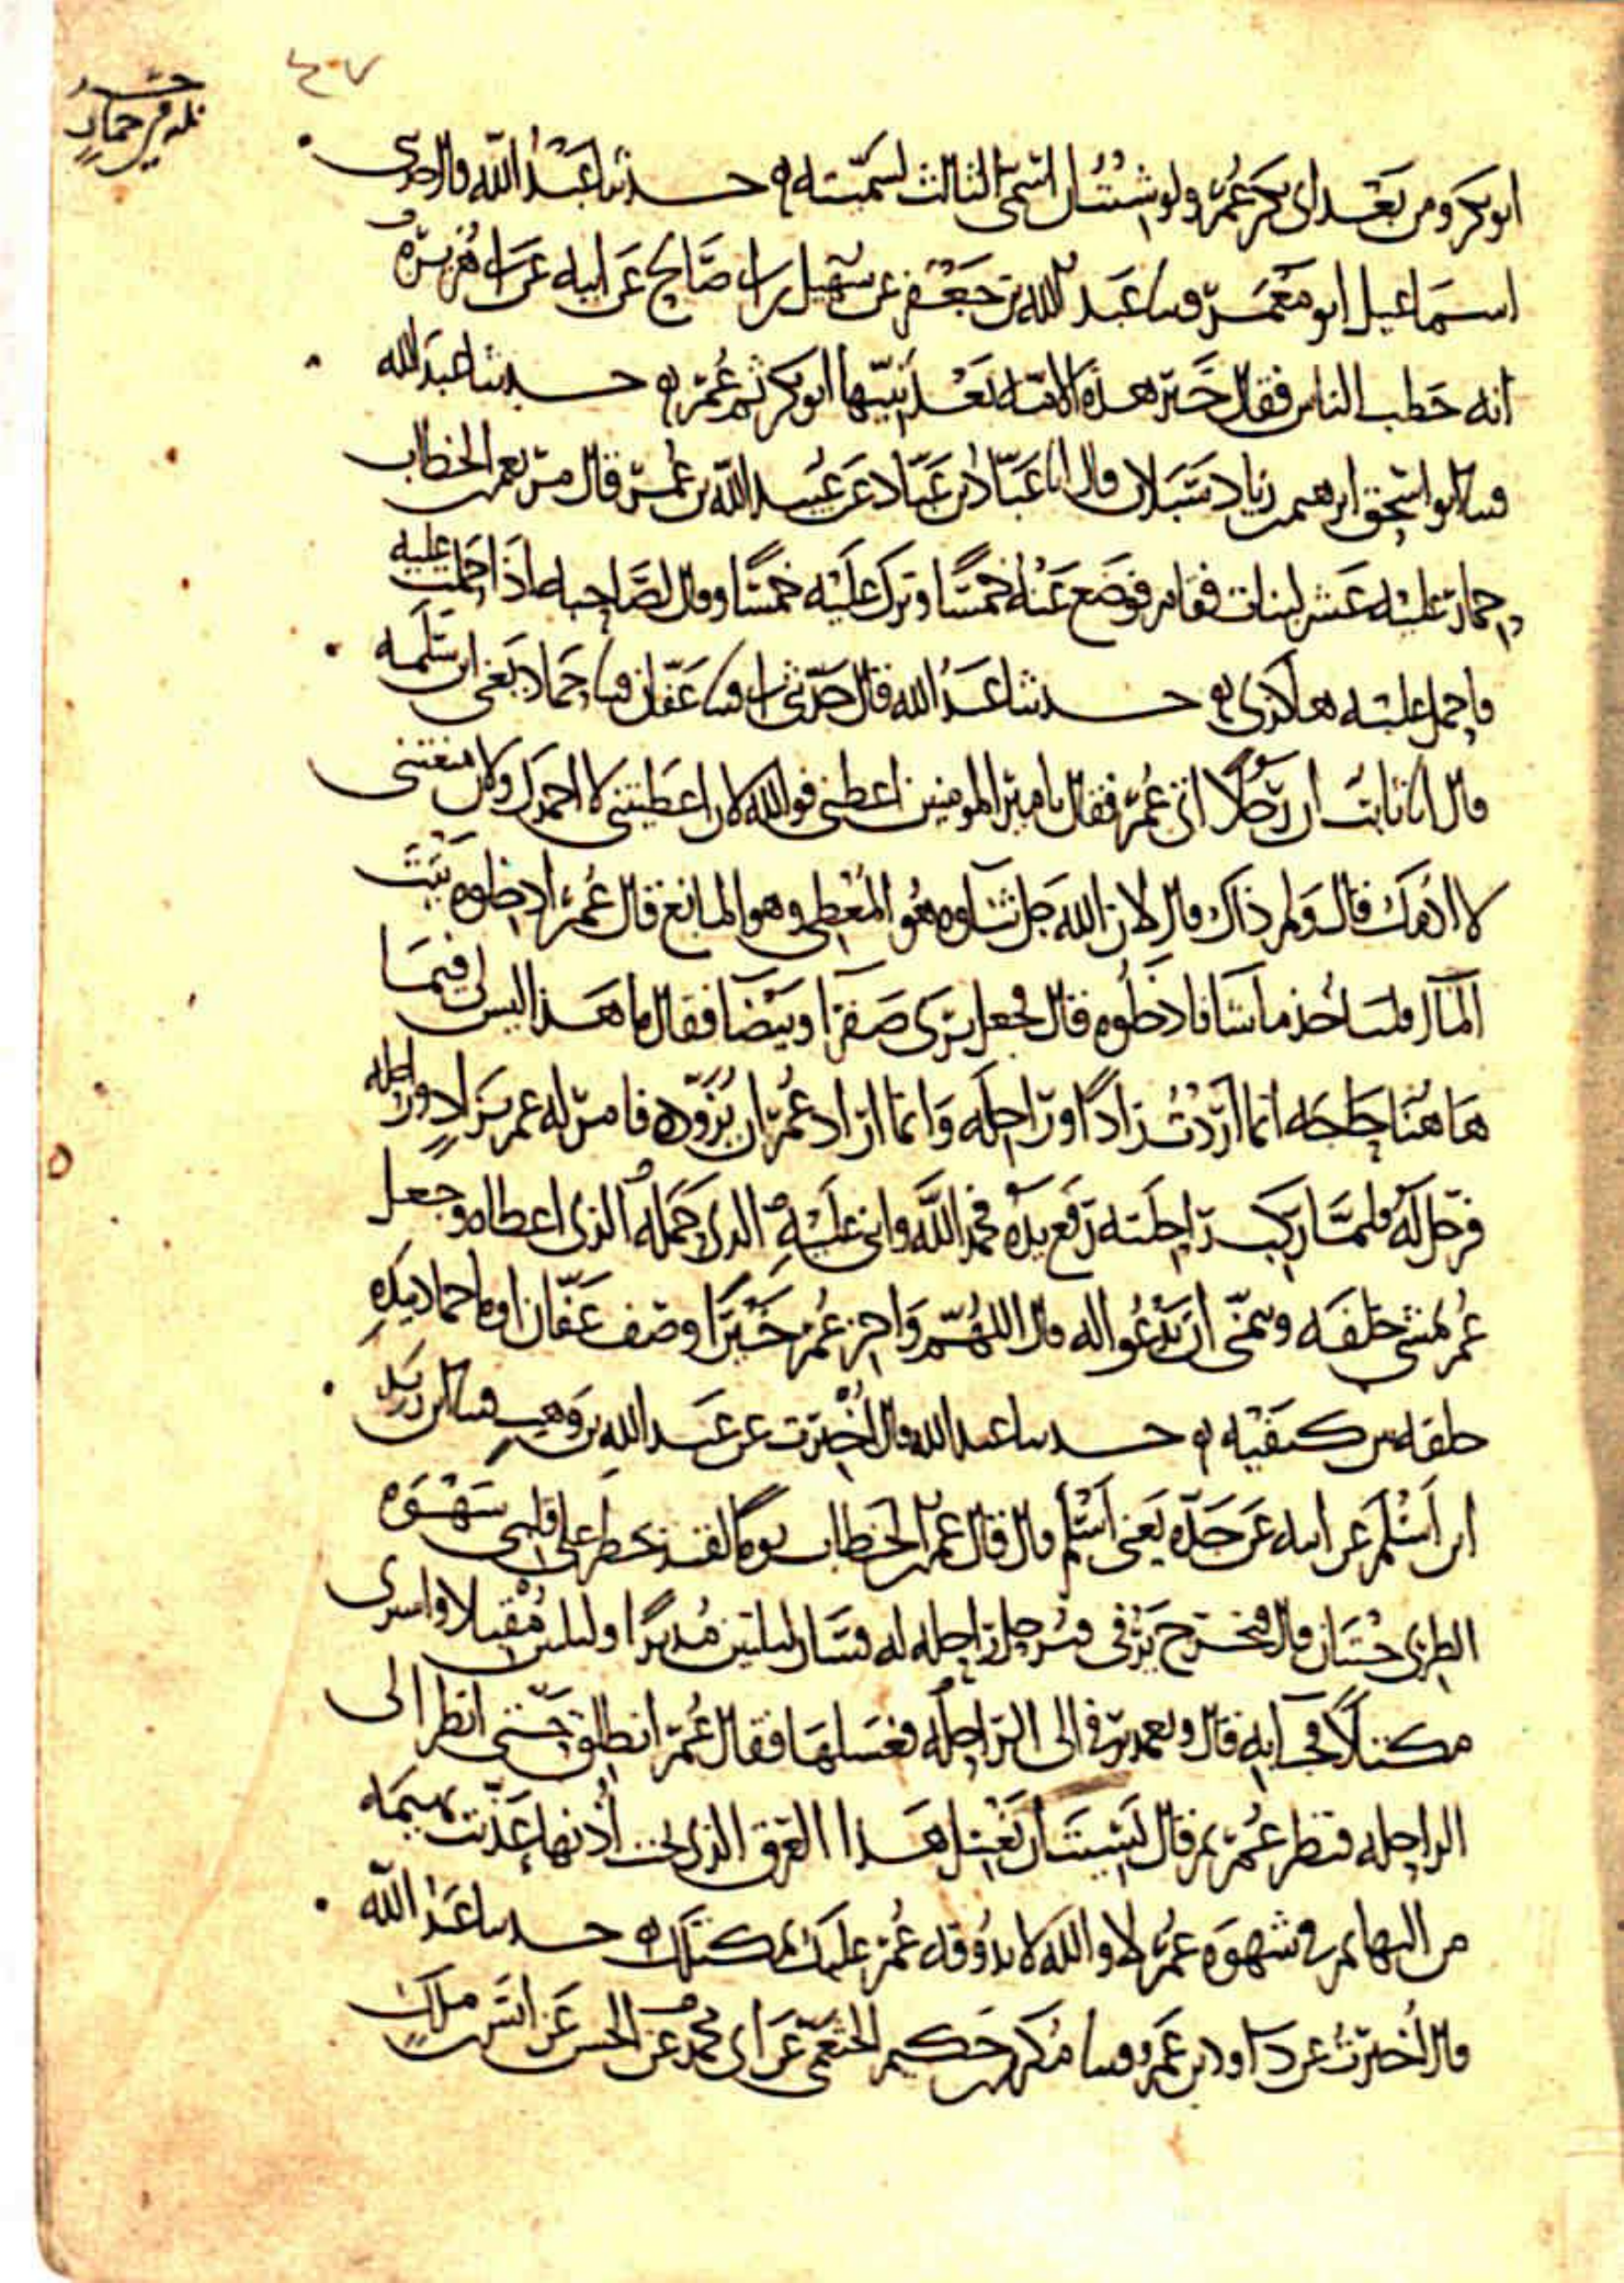 ٤٠٧
ابو بكر ومن بعد ابى بكر عمر ولو شئت ان اسمى الثالث لسميته ه حدثنا عبد الله قال حدثنى
اسماعيل ابو معمر قثنا عبد الله بن جعفر عن سهيل بن ابى صالح عن ابيه عن ابى هريرة
انه خطب الناس فقال خير هذه الامة بعد نبيها ابو بكر ثم عمر ه حدثنا عبد الله
قثنا ابو اسحق ابرهيم بن زياد سبلان قال انا عباد بن عباد عن عبيد الله بن عمر قال مر بعمر بن الخطاب
حمار عليه عشر لبنات فقام فوضع عنه خمسا وترك عليه خمسا وقال لصاحبه اذا حملت عليه
فاحمل عليه هاكذى ه حدثنا عبد الله قال حدثنى ابى قثنا عفان قثنا حماد يعنى ابن سلمه
قال انا ثابت ان رجلا اتى عمر فقال يا امير المومنين اعطنى فوالله لان اعطيتنى لا احمدك ولان منعتنى
لا اذمك قال ولم ذاك قال لان الله جل ثناوه هو المعطى وهو المانع قال عمر ادخلوه بيت
المال فلياخذ ما شا فادخلوه قال فجعل يرى صفرا وبيضا فقال ما هذا ليس لى فيما
ها هنا حاجه انما اردت زادا وراحله وانما اراد عمر ان يزوده فامر له عمر بزاد وراحله
فرحل له فلما ركب راحلته رفع يده فحمد الله واثنى عليه الذى حمله الذى اعطاه وجعل
عمر يمشى خلفه ويتمنى ان يدعوا له قال اللهم واجز عمر خيرا وصف عفان اوما حماد بيده
خلفه من كتفيه ه حدثنا عبد الله قال اخبرت عن عبد الله بن وهب قثنا بن زيد
ابن اسلم عن ابيه عن جده يعنى اسلم قال قال عمر بن الخطاب يوما لقد خطر على قلبى شهوه
الطرى حيتان قال فخرج يرفى فرحل راحله له فسار ليلتين مدبرا وليلتين مقبلا واشترى
مكتلا فجا به قال ويعمد يرفى الى الراحله فغسلها فقال عمر انطلق حتى انظر الى
الراحله فنظر عمر ثم قال نسيت ان تغسل هذا العرق الذى تحت اذنها عذبت بهيمه
من البهايم فى شهوه عمر لا والله لا يذوقه عمر عليك بمكتلك ه حدثنا عبد الله
قال اخبرت عن داود بن عمرو قثنا مكرم بن حكيم الخثعمى عن ابى محمد عن الحسن عن انس بن ملك